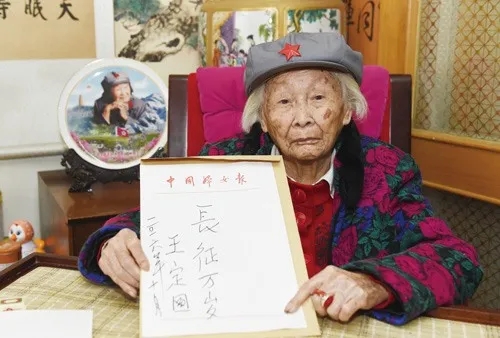 中国妇女报
長征万岁
王定国
二〇一六年十月